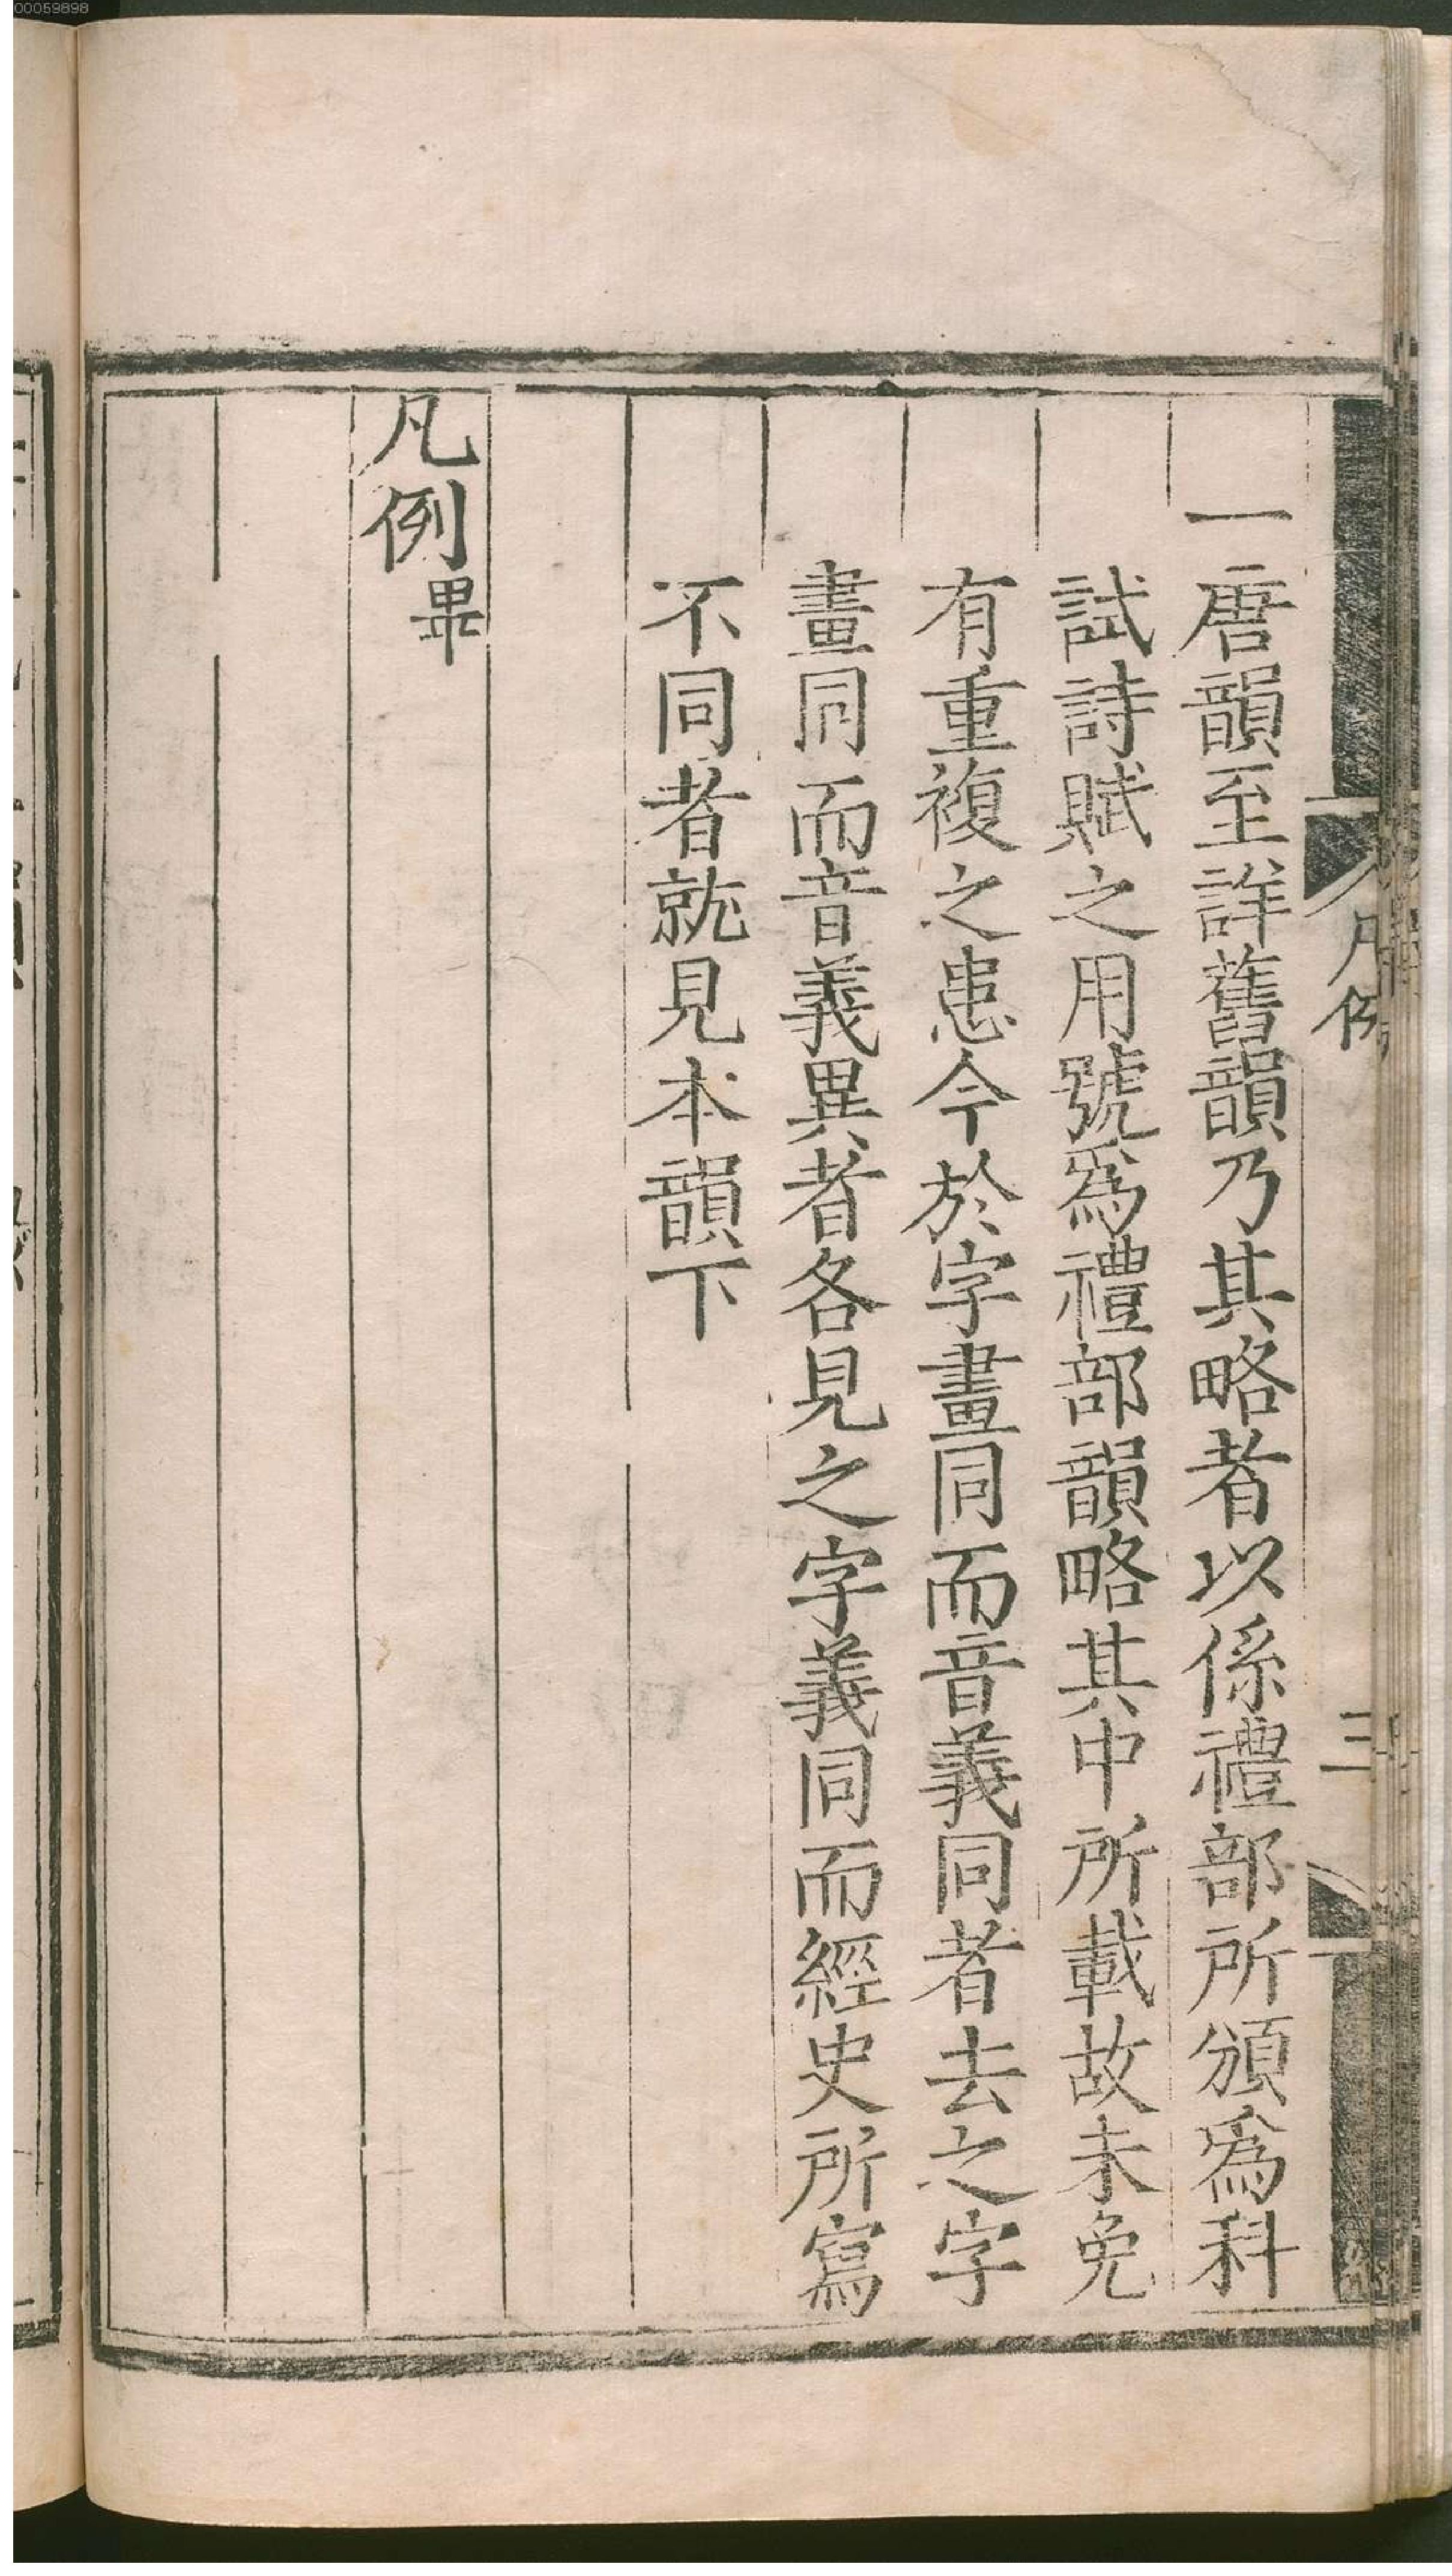 00059898
凡例
三
一唐韻至詳舊韻乃其略者以係禮部所頒為科
試詩賦之用號為禮部韻略其中所載故未免
有重複之患今於字畫同而音義同者去之字
畫同而音義異者各見之字義同而經史所寫
不同者就見本韻下
凡例畢